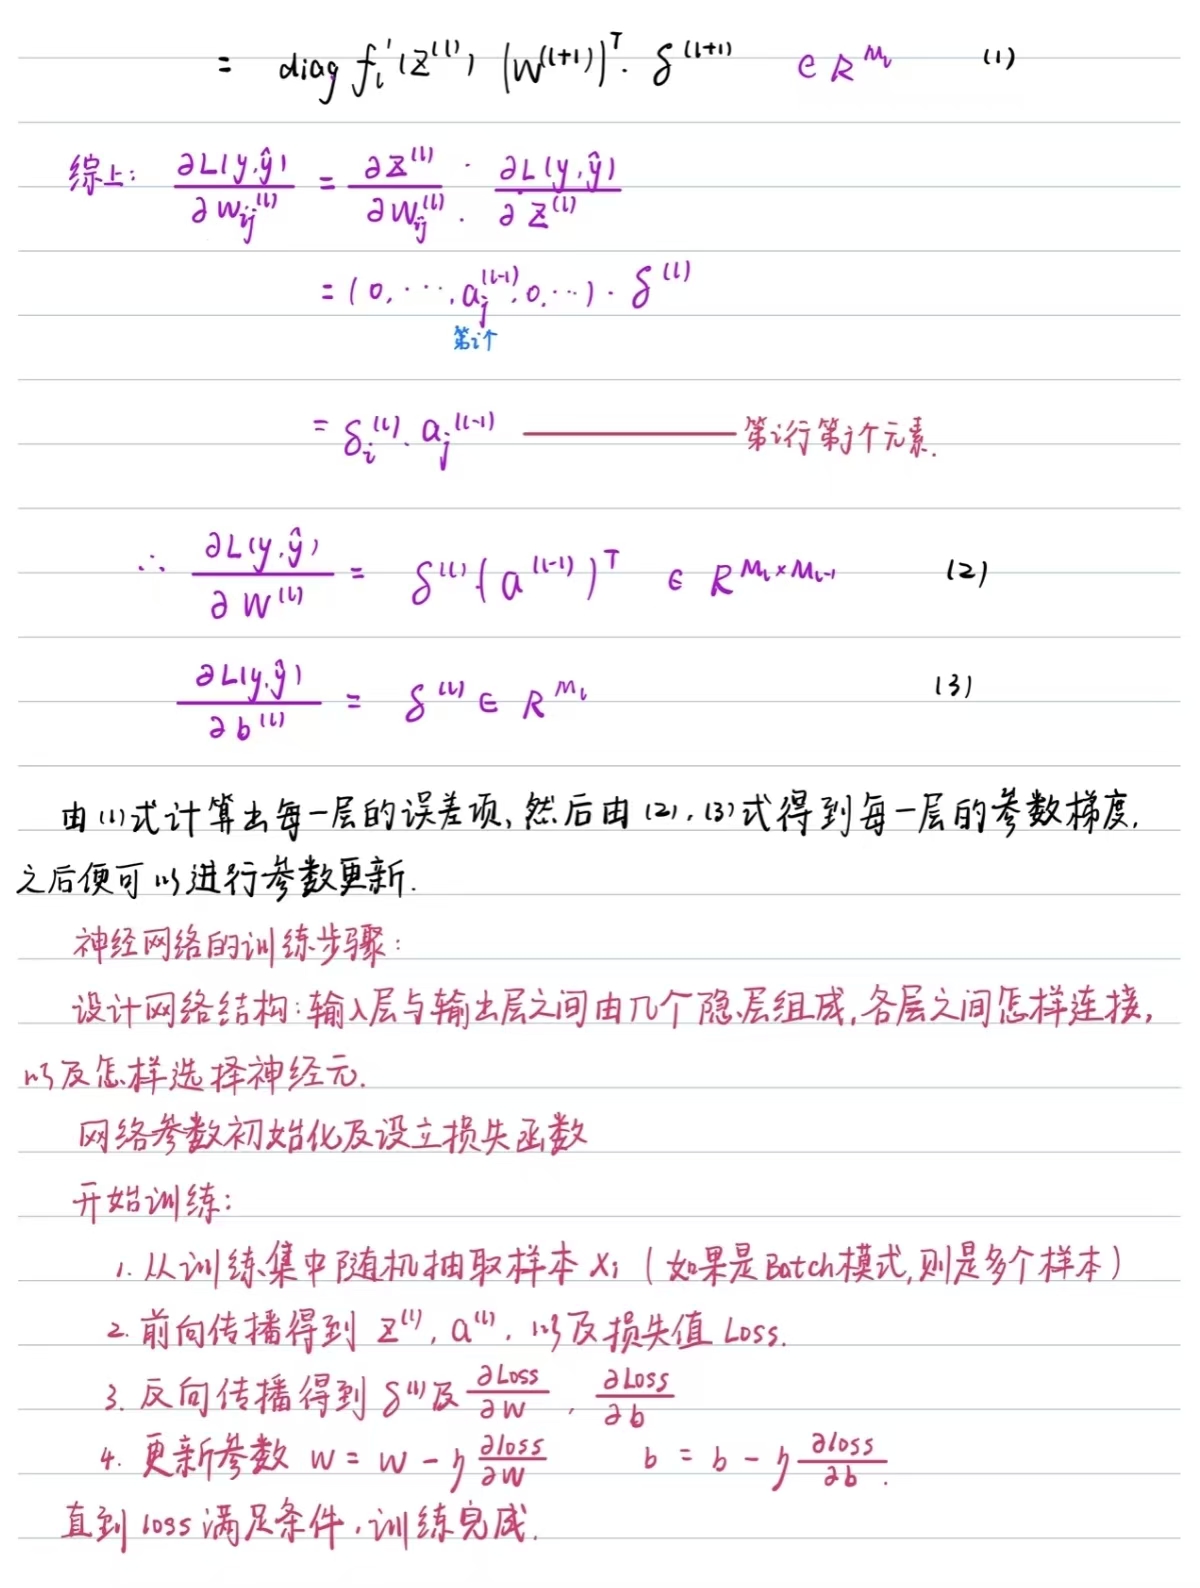 = diag f_l'(z^(l)) (W^(l+1))^T · δ^(l+1) ∈ R^{M_l} (1)
综上: ∂L(y,ŷ)/∂w_ij^(l) = ∂z^(l)/∂w_ij^(l) · ∂L(y,ŷ)/∂z^(l)
= (0, ⋯, a_j^(l-1), 0, ⋯) · δ^(l)
第i个
= δ_i^(l) · a_j^(l-1) —— 第i行第j个元素.
∴ ∂L(y,ŷ)/∂W^(l) = δ^(l) (a^(l-1))^T ∈ R^{M_l×M_{l-1}} (2)
∂L(y,ŷ)/∂b^(l) = δ^(l) ∈ R^{M_l} (3)
由(1)式计算出每一层的误差项,然后由(2),(3)式得到每一层的参数梯度,
之后便可以进行参数更新.
神经网络的训练步骤:
设计网络结构:输入层与输出层之间由几个隐层组成,各层之间怎样连接,
以及怎样选择神经元.
网络参数初始化及设立损失函数
开始训练:
1. 从训练集中随机抽取样本 x_i (如果是Batch模式,则是多个样本)
2. 前向传播得到 z^(l), a^(l), 以及损失值 Loss.
3. 反向传播得到 δ^(l)及 ∂Loss/∂w , ∂Loss/∂b
4. 更新参数 w = w - η ∂loss/∂w b = b - η ∂loss/∂b.
直到 loss 满足条件,训练完成.